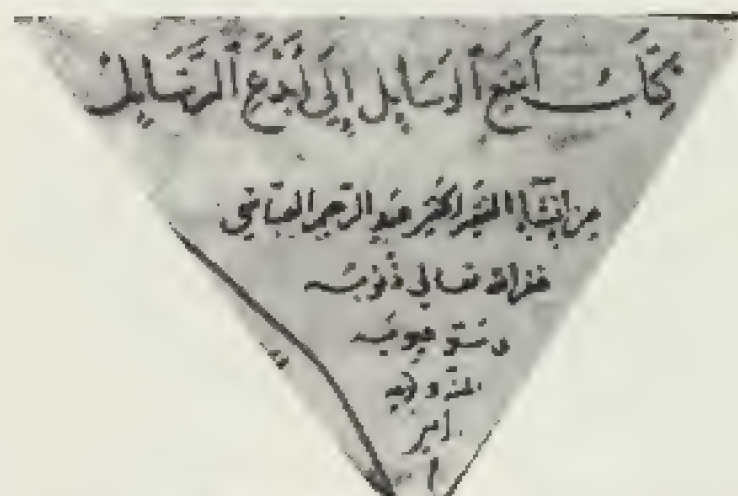 كِتَابُ أَنْفَعِ ٱلْوَسَايِلِ إِلَى أَبْدَعِ ٱلرَّسَايِلِ
من إنشاء الفقير عبد الرحيم العباسي
غفر الله تعالى ذنوبه
وستر عيوبه
بمنه وكرمه
امين